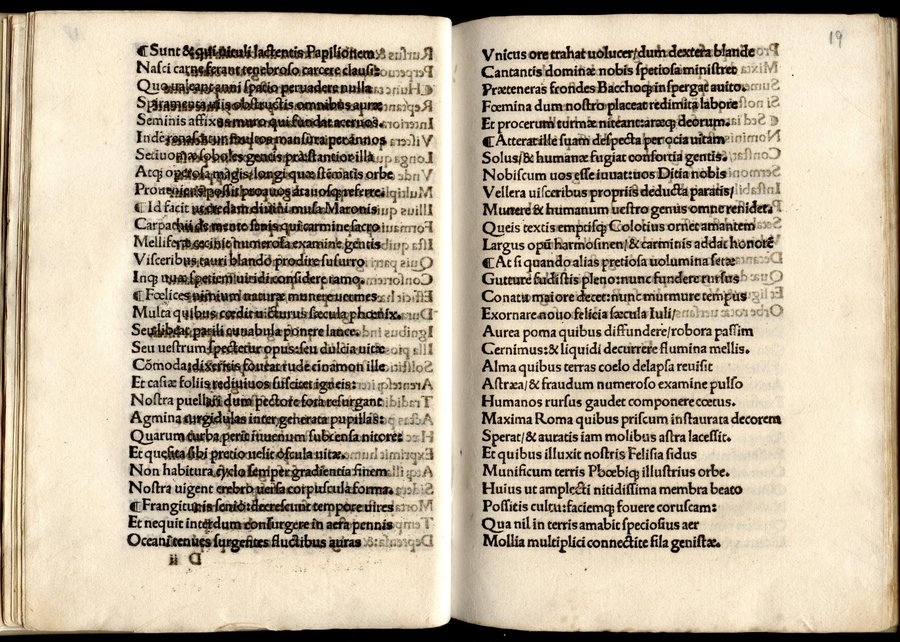 ¶ Sunt & qui uituli lactentis Papilionem
Nasci carne ferant tenebroso carcere clausi:
Quo ualeant anni spatio peruadere nulla
Spiramenta satis obstructis omnibus auræ
Seminis affixos muro qui fundat aceruos.
Inde renascatur multos mansura per annos
Seu uomæ soboles gentis præstantior illa
Atq; operosa magis/longi quæ stēmatis orbe
Proueniens possit proauos atauosq; referre.
¶ Id facit ut credam diuini musa Maronis
Carpathii de mente senis qui carmine sacro
Melliferæ cecinit numerosa examine gentis
Visceribus tauri blando prodire susurro
Inq; nouam spetiem uiridi considere ramo.
¶ Fœlices nimium naturæ munere uermes
Multa quibus cœdit uicturus sæcula phœnix.
Seu libeat parili cunabula ponere lance.
Seu uestrum spectetur opus: seu dulcia uitæ
Cōmoda: dixeris foueat rude cinamon ille
Et casiæ foliis rediuiuos suscitet igneis:
Nostra puellari dum pectore fota resurgant
Agmina turgidulas inter generata pupillas:
Quarum turba perit iuuenum succensa nitore:
Et quesita sibi pretio uelit oscula uitæ.
Non habitura cyclo semper gradientia finem
Nostra uigent crebro uersa corpuscula forma.
¶ Frangitur is senio: decrescunt tempore uires
Et nequit interdum consurgere in aera pennis
Oceani tenues surgentes fluctibus auras
D ii
19
Vnicus ore trahat uolucer/dum dextera blande
Cantantis dominæ nobis spetiosa ministret
Præteneras frondes Bacchoq; inspergat auito.
Fœmina dum nostro placeat redimita labore
Et procerum turmæ niteant: aræq; deorum.
¶ Atterat ille suam despecta per ocia uitam
Solus/& humanæ fugiat confortia gentis.
Nobiscum uos esse iuuat: uos Ditia nobis
Vellera uisceribus propriis deducta paratis/
Munere & humanum uestro genus omne renidet.
Queis textis emptisq; Colotius ornet amantem
Largus opū harmosinen/& carminis addat honorē
¶ At si quando alias pretiosa uolumina setæ
Gutture fudistis pleno: nunc fundere rursus
Conatu maiore decet: nunc murmure tempus
Exornare nouo felicia sæcula Iuli/
Aurea poma quibus diffundere/robora passim
Cernimus: & liquidi decurrere flumina mellis.
Alma quibus terras coelo delapsa reuisit
Astræa/& fraudum numeroso examine pulso
Humanos rursus gaudet componere cœtus.
Maxima Roma quibus priscum instaurata decorem
Sperat/& auratis iam molibus astra lacessit.
Et quibus illuxit nostris Felisia sidus
Munificum terris Phœbiq; illustrius orbe.
Huius ut amplecti nitidissima membra beato
Possitis cultu: faciemq; fouere coruscam:
Qua nil in terris amabit speciosius aer
Mollia multiplici connectite fila genistæ.